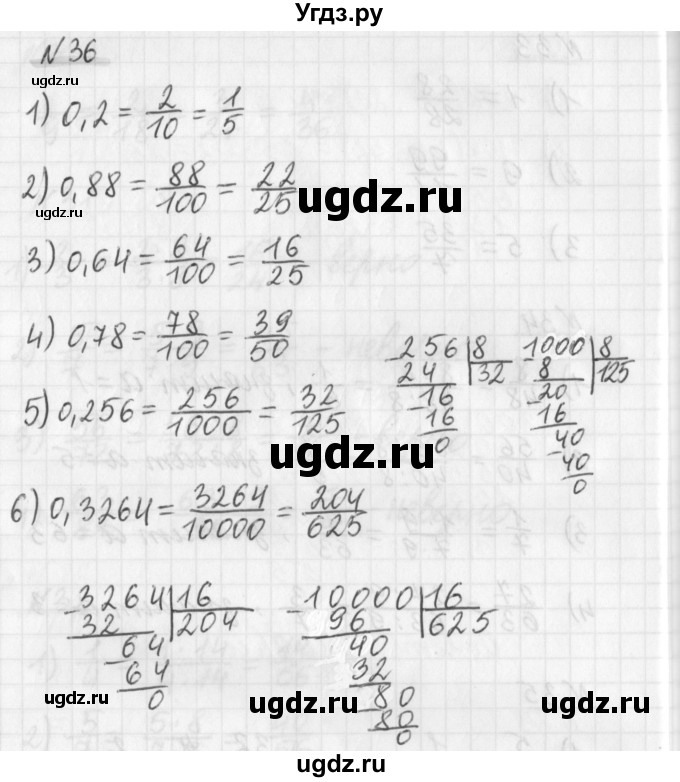 Угдз.ру
№36
ugdz.ru
1) 0,2 = 2/10 = 1/5
2) 0,88 = 88/100 = 22/25
ugdz.ru
ugdz.ru
3) 0,64 = 64/100 = 16/25
4) 0,78 = 78/100 = 39/50
256 | 8
24 | 32
16
16
0
1000 | 8
8 | 125
20
16
40
40
0
5) 0,256 = 256/1000 = 32/125
ugdz.ru
6) 0,3264 = 3264/10000 = 204/625
3264 | 16
32 | 204
64
64
0
10000 | 16
96 | 625
40
32
80
80
0
ugdz.ru
ugdz.ru
ugdz.ru
ugdz.ru